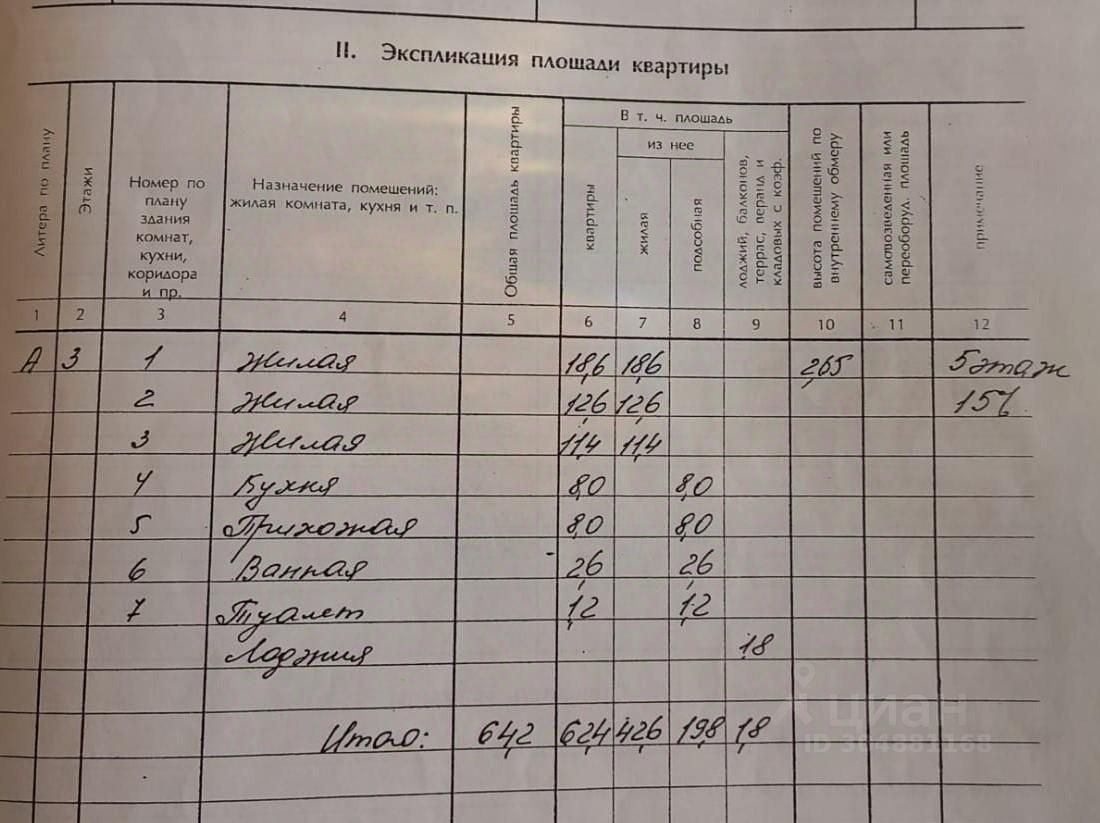 II. Экспликация площади квартиры
Литера по плану
Этажи
Номер по
плану
здания
комнат,
кухни,
коридора
и пр.
Назначение помещений:
жилая комната, кухня и т. п.
Общая площадь квартиры
В т. ч. площадь
квартиры
из нее
жилая
подсобная
лоджий, балконов,
террас, веранд и
кладовых с коэф.
высота помещений по
внутреннему обмеру
самовозведенная или
переоборуд. площадь
примечание
1 2 3 4 5 6 7 8 9 10 11 12
А 3 1 Жилая 18,6 18,6 2,65 5 этаж
2 Жилая 12,6 12,6
3 Жилая 11,4 11,4
4 Кухня 8,0 8,0
5 Прихожая 8,0 8,0
6 Ванная 2,6 2,6
7 Туалет 1,2 1,2
Лоджия 1,8
Итого: 64,2 62,4 42,6 19,8 1,8
циан
ID 304881168